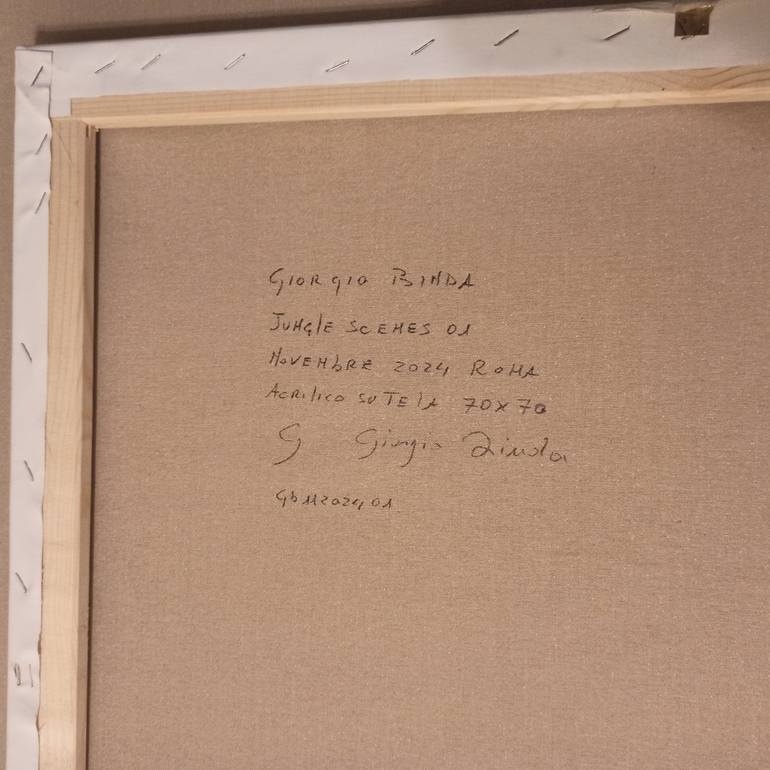 GIORGIO BINDA
JUNGLE SCENES 01
NOVEMbRE 2024 ROMA
ACRIlICO SU TElA 70X70
G Giorgio Binda
Gb11202401